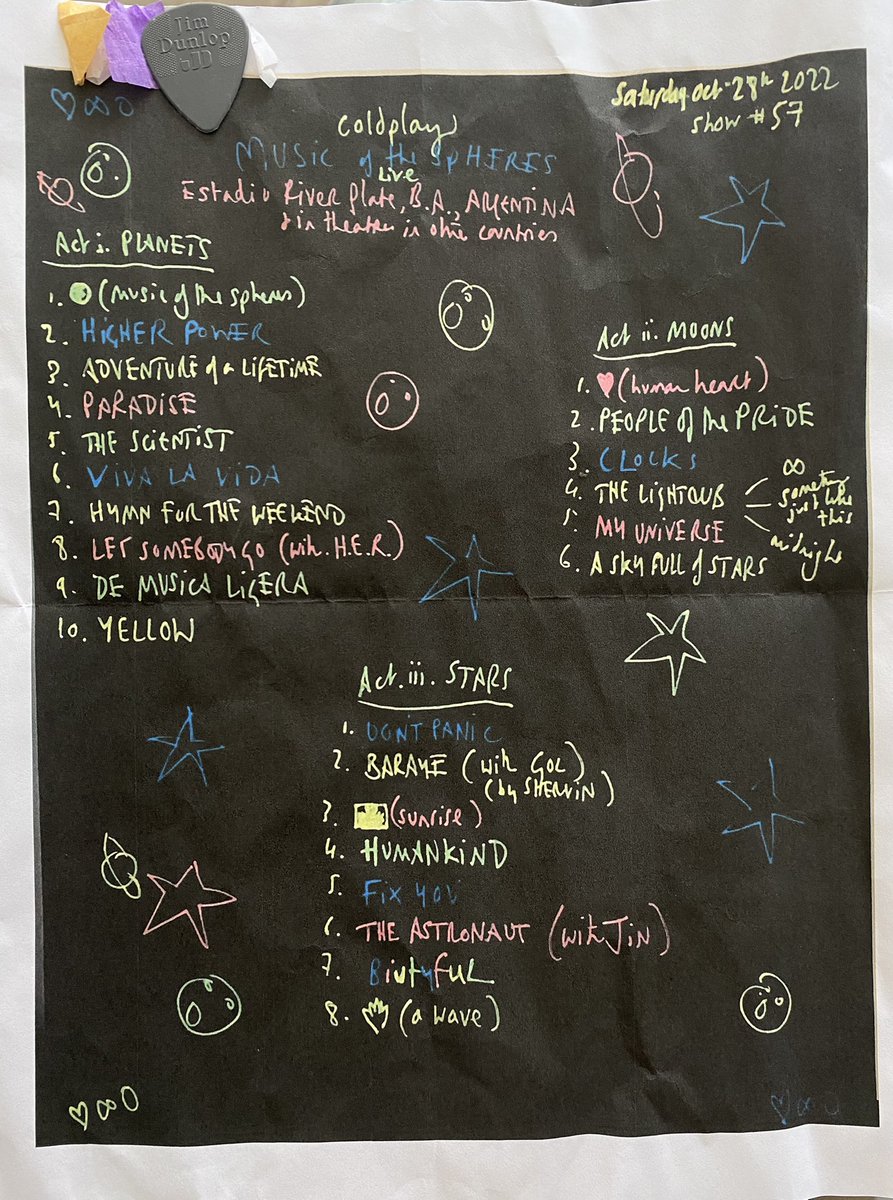 Jim
Dunlop
Saturday Oct 28th 2022
show #57
♡∞O
coldplay
MUSIC of the SPHERES
Live
Estadio River Plate, B.A., ARGENTINA
& in theatres in other countries
Act i. PLANETS
1. (music of the spheres)
2. HiGHER POWER
3. ADVENTURE of a LiFETiME
4. PARADiSE
5. THE SCiENTiST
6. ViVA LA ViDA
7. HYMN FOR THE WEEKEND
8. LET SOMEBODY GO (with H.E.R.)
9. DE MUSiCA LiGERA
10. YELLOW
Act ii. MOONS
1. ♥ (human heart)
2. PEOPLE of the PRiDE
3. CLOCKS
4. THE LiGHTCLUB
5. MY UNiVERSE
6. A SKY FULL of STARS
∞
something
just like
this
midnight
Act. iii. STARS
1. DON'T PANiC
2. BARAYE (with GOL)
(by SHERViN)
3. (sunrise)
4. HUMANKiND
5. Fix YOU
6. THE ASTRONAUT (with JiN)
7. BiutyfuL
8. (a wave)
♡∞O
♡∞O